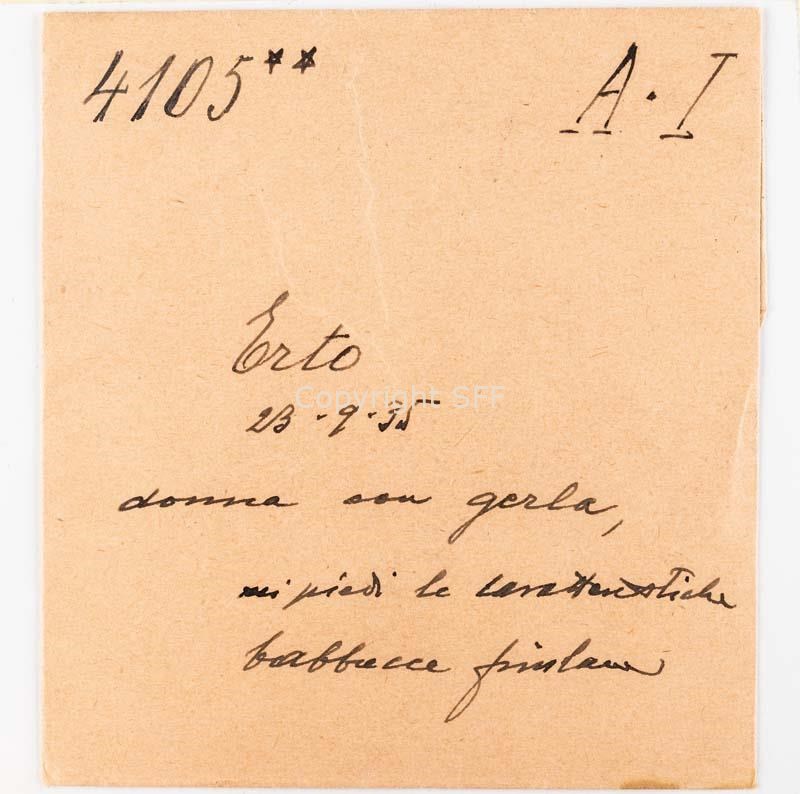 4105** A·I
Erto
Copyright SFF
23-9-35
donna con gerla,
ai piedi le caratteristiche
babbucce friulane